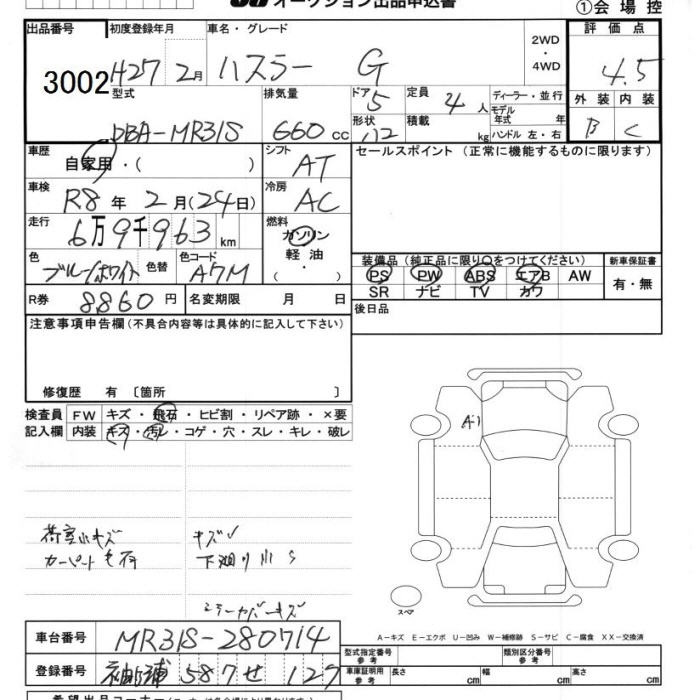 オークション出品申込書
①会場控
出品番号 初度登録年月 車名・グレード 評価点
3002 H27 2月 ハスラー G 2WD・4WD 4.5
型式 排気量 ドア 定員 ディーラー・並行 外装 内装
DBA-MR31S 660cc 5 4人 モデル年式 年 B C
形状 積載 kg ハンドル 左・右
車歴 自家用・( ) シフト AT セールスポイント (正常に機能するものに限ります)
車検 R8年2月(24日) 冷房 AC
走行 6万9千963km 燃料 ガソリン
色 ブルー/ホワイト 色替 色コード A7M 軽油・( )
装備品 (純正品に限り○をつけてください) 新車保証書
PS PW ABS エアB AW 有・無
SR ナビ TV カワ
R券 8860円 名変期限 月 日 後日品
注意事項申告欄 (不具合内容等は具体的に記入して下さい)
修復歴 有 〔箇所 〕
検査員 FW キズ・飛石・ヒビ割・リペア跡・×要
記入欄 内装 キズ・汚レ・コゲ・穴・スレ・キレ・破レ
A1
荷室小キズ キズ
カーペット 下廻り小S
ミラーカバーキズ
スペア
A-キズ E-エクボ U-凹み W-補修跡 S-サビ C-腐食 XX-交換済
車台番号 MR31S-280714
型式指定番号 参考 類別区分番号 参考
登録番号 袖ヶ浦 587 せ 127
車庫証明用 参考 長さ cm 幅 cm 高さ cm